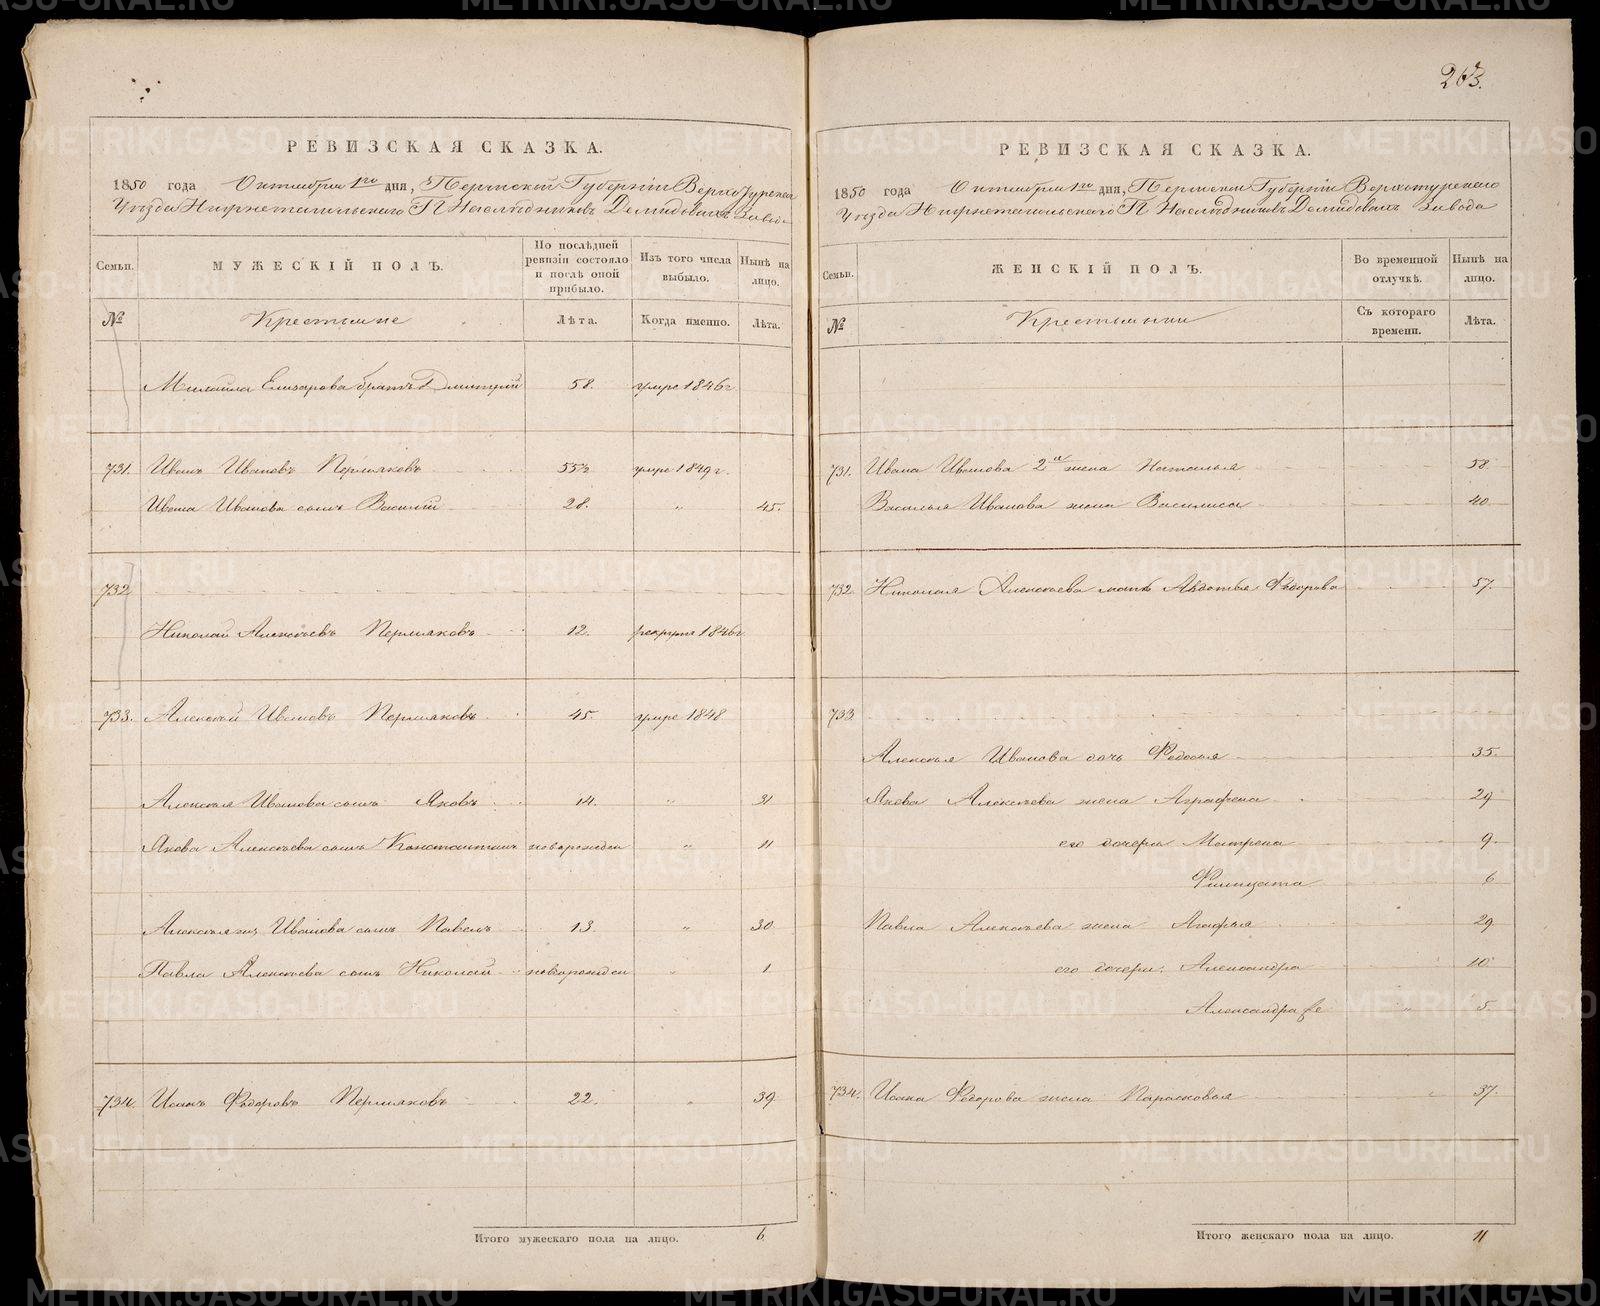 263.
РЕВИЗСКАЯ СКАЗКА.
1850 года Октября 1го дня, Пермской Губернiи Верхотурскаго
Уѣзда Нижнетагильскаго Г. Наслѣдниковъ Демидовыхъ Завода
Семьи. МУЖЕСКIЙ ПОЛЪ. По послѣдней ревизiи состояло и послѣ оной прибыло. Изъ того числа выбыло. Нынѣ на лицо.
№ Крестьяне Лѣта. Когда именно. Лѣта.
Михайла Елизарова братъ Дмитрiй 58. умре 1846 г
731. Иванъ Ивановъ Пермяковъ 55½ умре 1849 г.
Ивана Иванова сынъ Василiй 28. " 45.
732
Николай Алексѣевъ Пермяковъ 12. рекрут 1846 г
733. Алексѣй Ивановъ Пермяковъ 45. умре 1848
Алексѣя Иванова сынъ Яковъ 14. " 31
Якова Алексѣева сынъ Константинъ новорожден " 11
Алексѣя Иванова сынъ Павелъ 13 " 30
Павла Алексѣева сынъ Николай новорожден " 1
734. Исакъ Федоровъ Пермяковъ 22. " 39
Итого мужескаго пола на лицо. 6
РЕВИЗСКАЯ СКАЗКА.
1850 года Октября 1го дня, Пермской Губернiи Верхотурскаго
Уѣзда Нижнетагильскаго Г. Наслѣдниковъ Демидовыхъ Завода
Семьи. ЖЕНСКIЙ ПОЛЪ. Во временной отлучкѣ. Нынѣ на лицо.
№ Крестьянки Съ котораго времени. Лѣта.
731. Ивана Иванова 2я жена Наталья 58
Василья Иванова жена Василиса 40
732. Николая Алексѣева мать Авдотья Федорова 57.
733.
Алексѣя Иванова дочь Федосья 35.
Якова Алексѣева жена Аграфена 29
его дочери Матрена 9
Филицата 6
Павла Алексѣева жена Агафья 29
его дочери: Александра 10
Александра же " 5.
734. Исака Федорова жена Парасковья " 37.
Итого женскаго пола на лицо. 11
METRIKI.GASO-URAL.RU